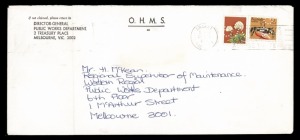 If not claimed, please return to
DIRECTOR-GENERAL
PUBLIC WORKS DEPARTMENT
2 TREASURY PLACE
MELBOURNE, VIC. 3002
O.H.M.S.
Mr. H. McKean
Regional Supervisor of Maintenance
Western Region
Public Works Department
6th Floor
1 McArthur Street
Melbourne 3001.